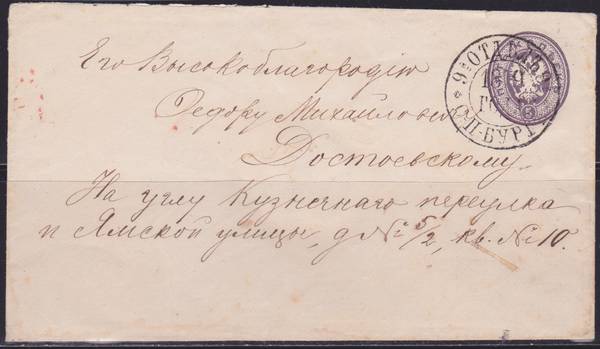 Его Высокоблагородію
Ѳедору Михайловичу
Достоевскому.
На углу Кузнечнаго переулка
и Ямской улицы, д № 5/2, кв. № 10.
9 ОТД
С.П.БУРГ
5